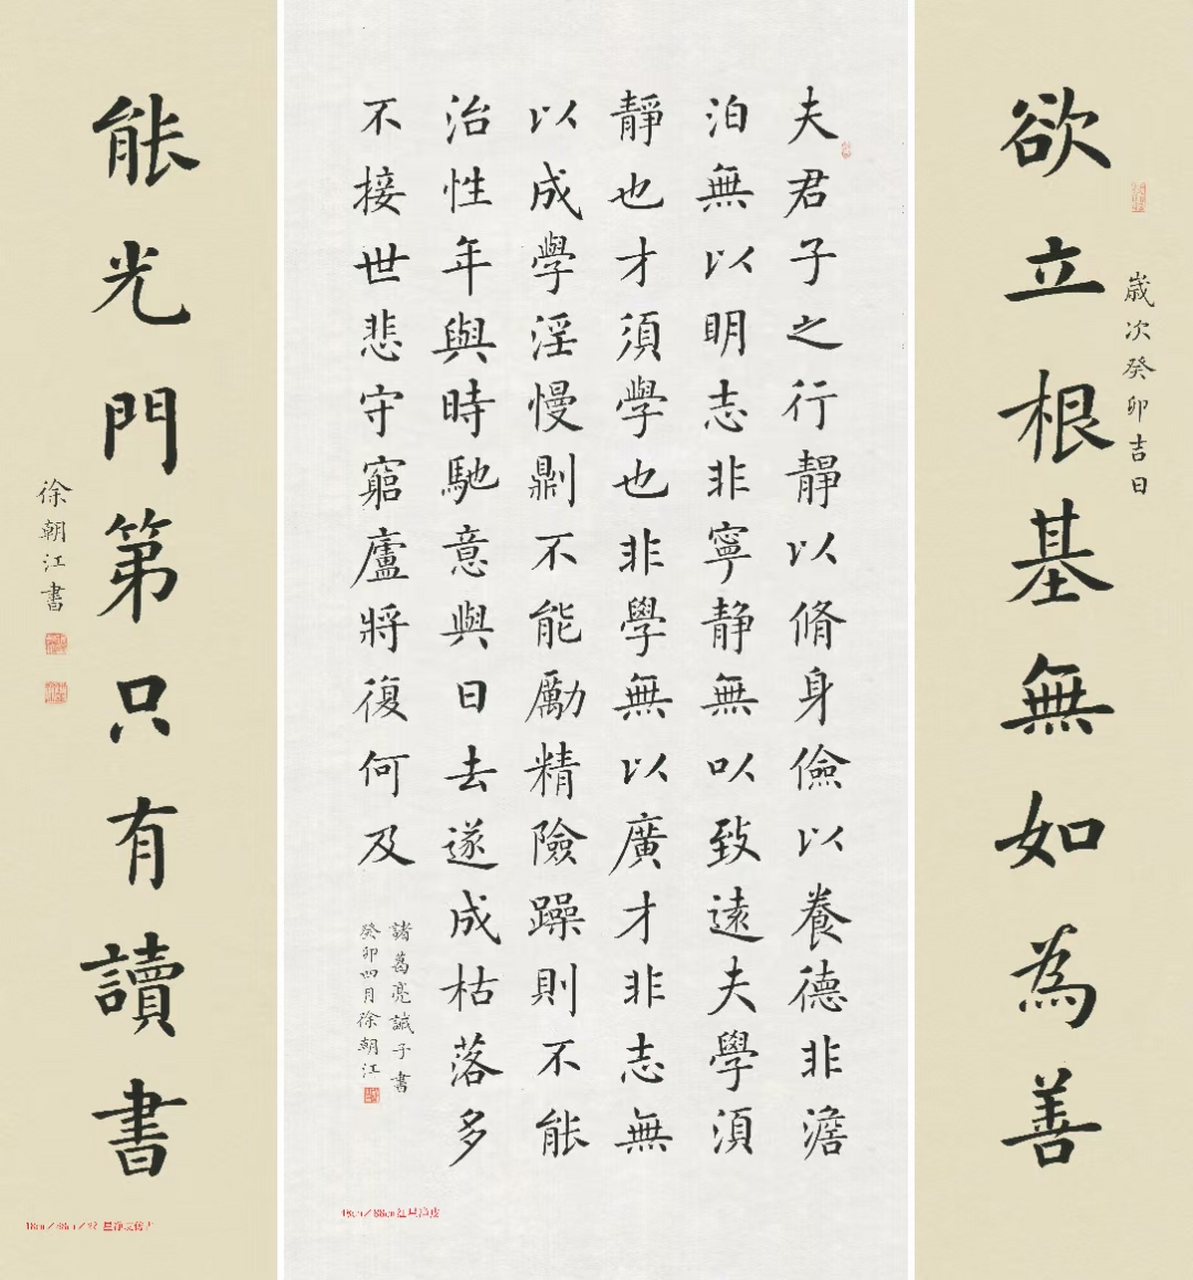 欲立根基無如為善
歲次癸卯吉日
夫君子之行靜以脩身儉以養德非澹
泊無以明志非寧静無以致遠夫學須
靜也才須學也非學無以廣才非志無
以成學淫慢則不能勵精險躁則不能
治性年與時馳意與日去遂成枯落多
不接世悲守窮廬將復何及
諸葛亮誡子書
癸卯四月徐朝江
能光門第只有讀書
徐朝江書